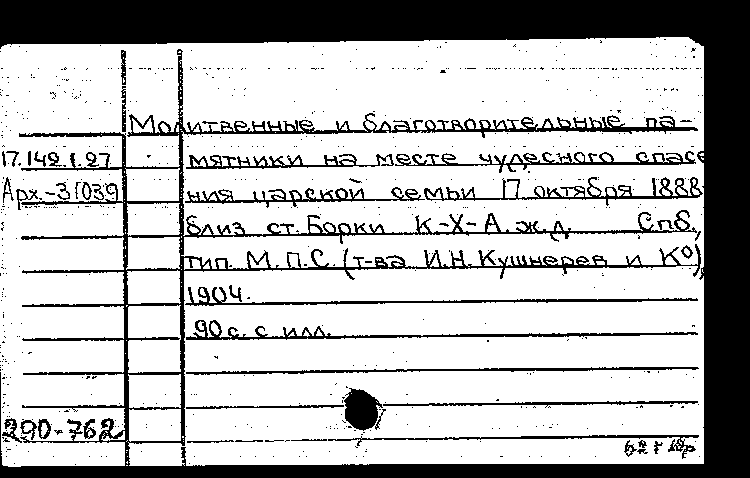 Молитвенные и благотворительные па-
17.142.1.27 мятники на месте чудесного спасе
Арх.-31039 ния царской семьи 17 октября 1888
близ ст. Борки К-Х-А. ж.д. Спб.,
тип. М.П.С. (т-ва И.Н. Кушнерев и К°),
1904.
90 с. с илл.
290-762